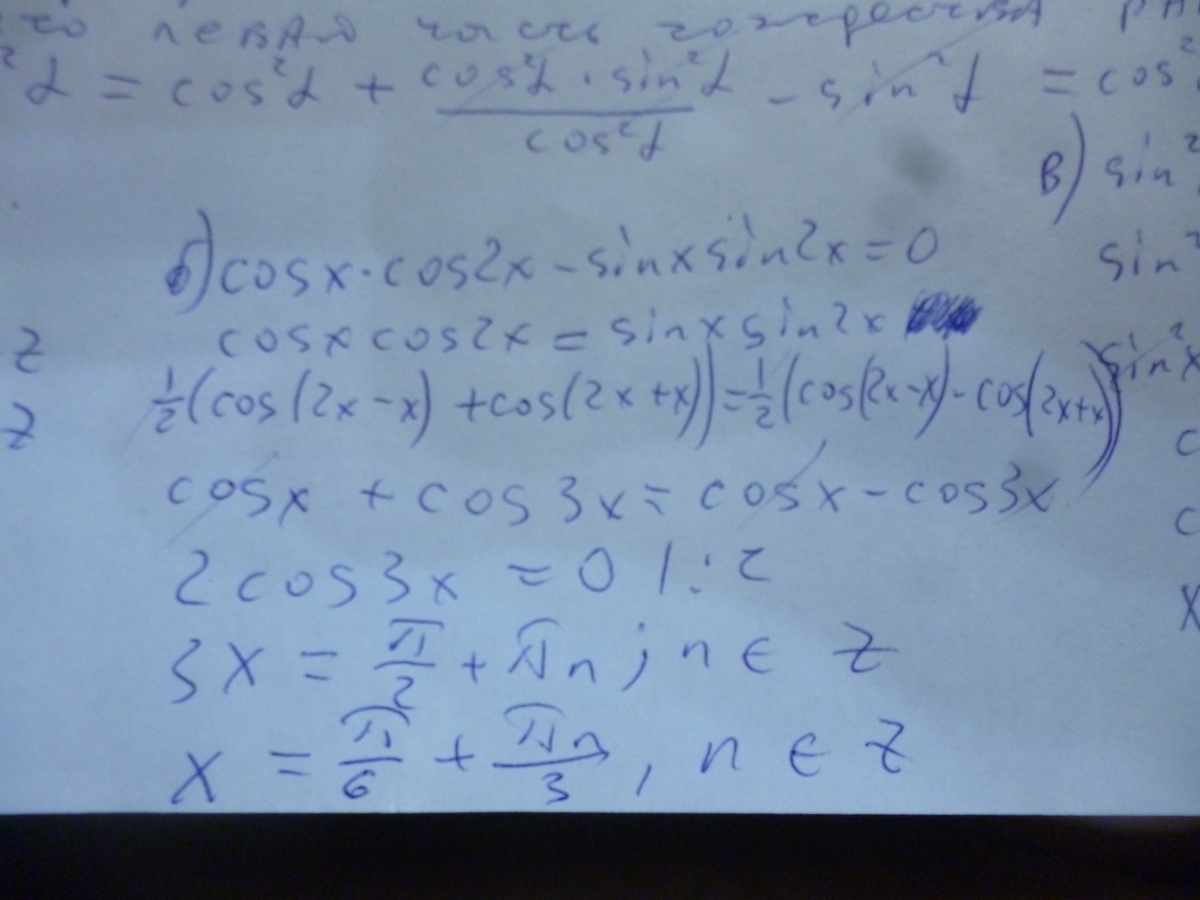 левая часть тождества
²α = cos²α + cos²α · sin²α / cos²α - sin²α = cos²
в) sin²
б) cosx · cos2x - sinx sin2x = 0
sin²
cosx cos2x = sinx sin2x
z
sin²x
1/2 (cos (2x - x) + cos (2x + x)) = 1/2 (cos(2x-x) - cos(2x+x))
z
c
cosx + cos3x = cosx - cos3x
c
2 cos3x = 0 | : 2
x
3x = π/2 + πn ; n ∈ z
x = π/6 + πn/3 , n ∈ z